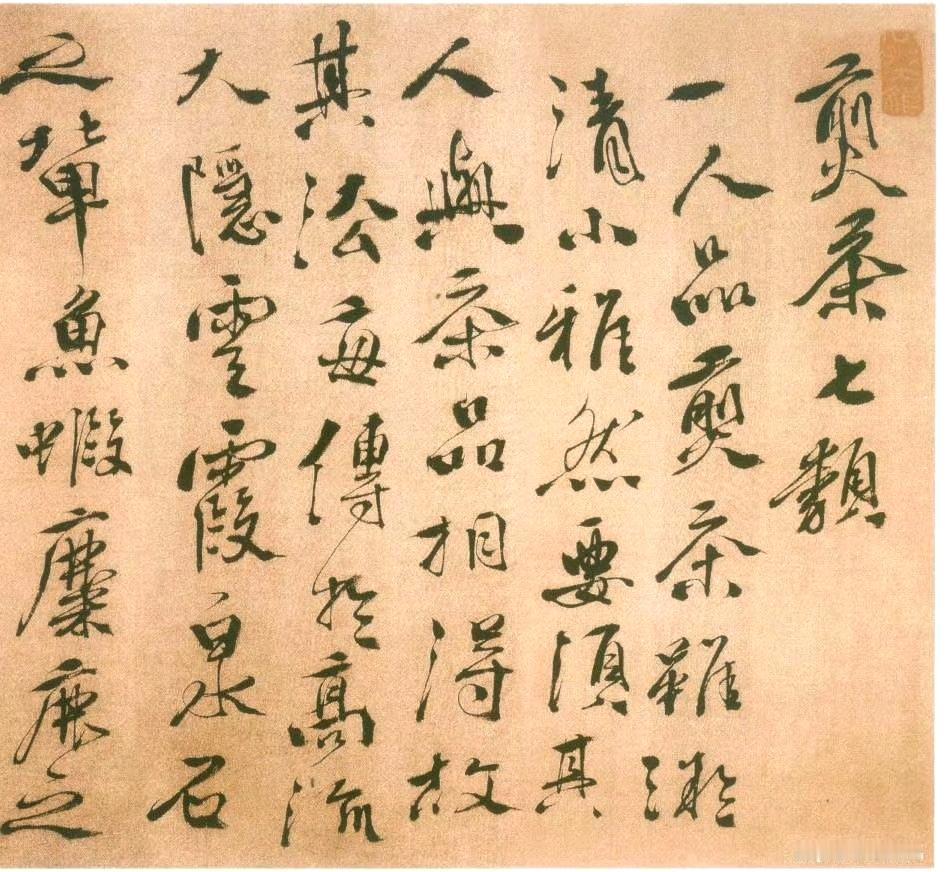 煎茶七類
一人品煎茶雖微
清小雅然要須其
人與茶品相得故
其法每傳於高流
大隱雲霞泉石
之輩魚蝦麋鹿之